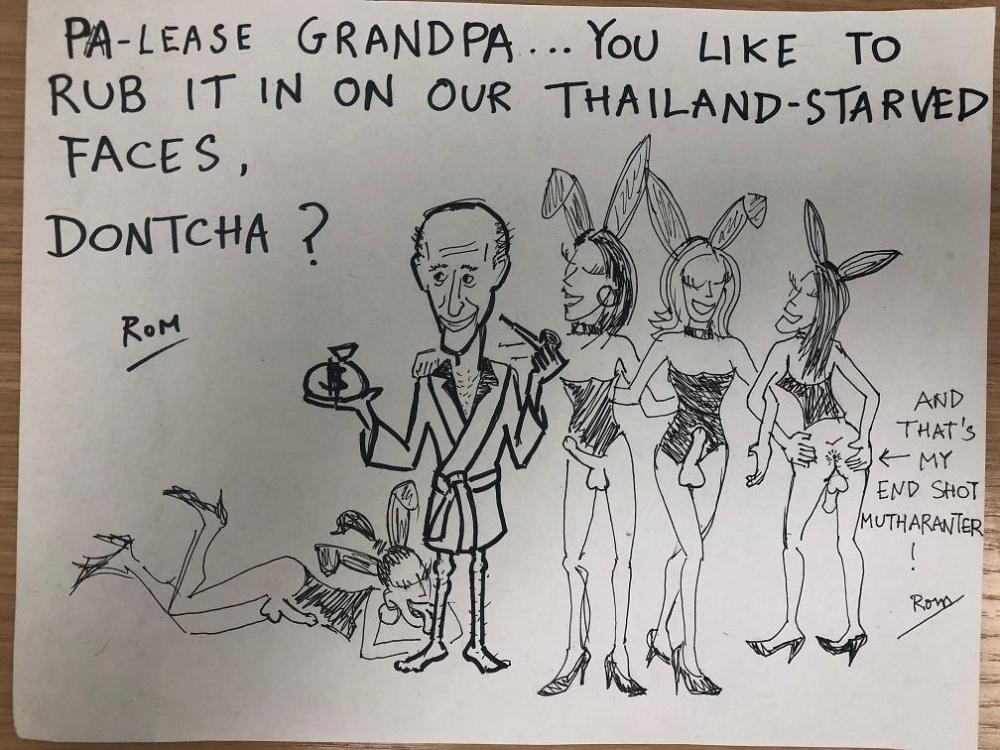 PA-LEASE GRANDPA... YOU LIKE TO
RUB IT IN ON OUR THAILAND-STARVED
FACES,
DONTCHA ?
ROM
$
AND
THAT'S
← MY
END SHOT
MUTHARANTER
!
Rom